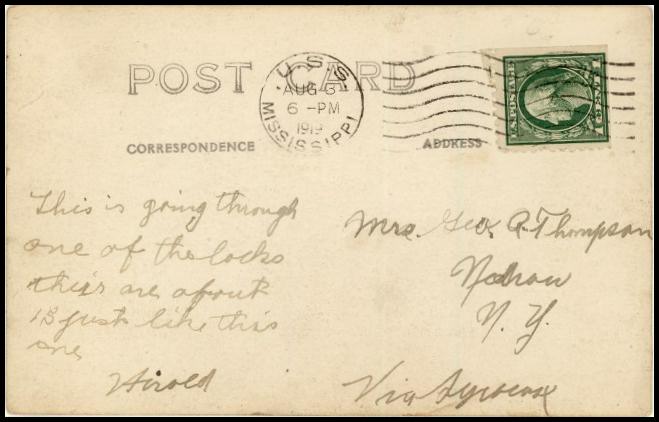 POST CARD
U.S.S.
AUG 3
6 - PM
1919
MISSISSIPPI
U.S. POSTAGE
CORRESPONDENCE
ADDRESS
This is going through
one of the locks
their are about
13 just like this
one
Harold
Mrs. Geo. A. Thompson
N. Y.
Via Syracuse